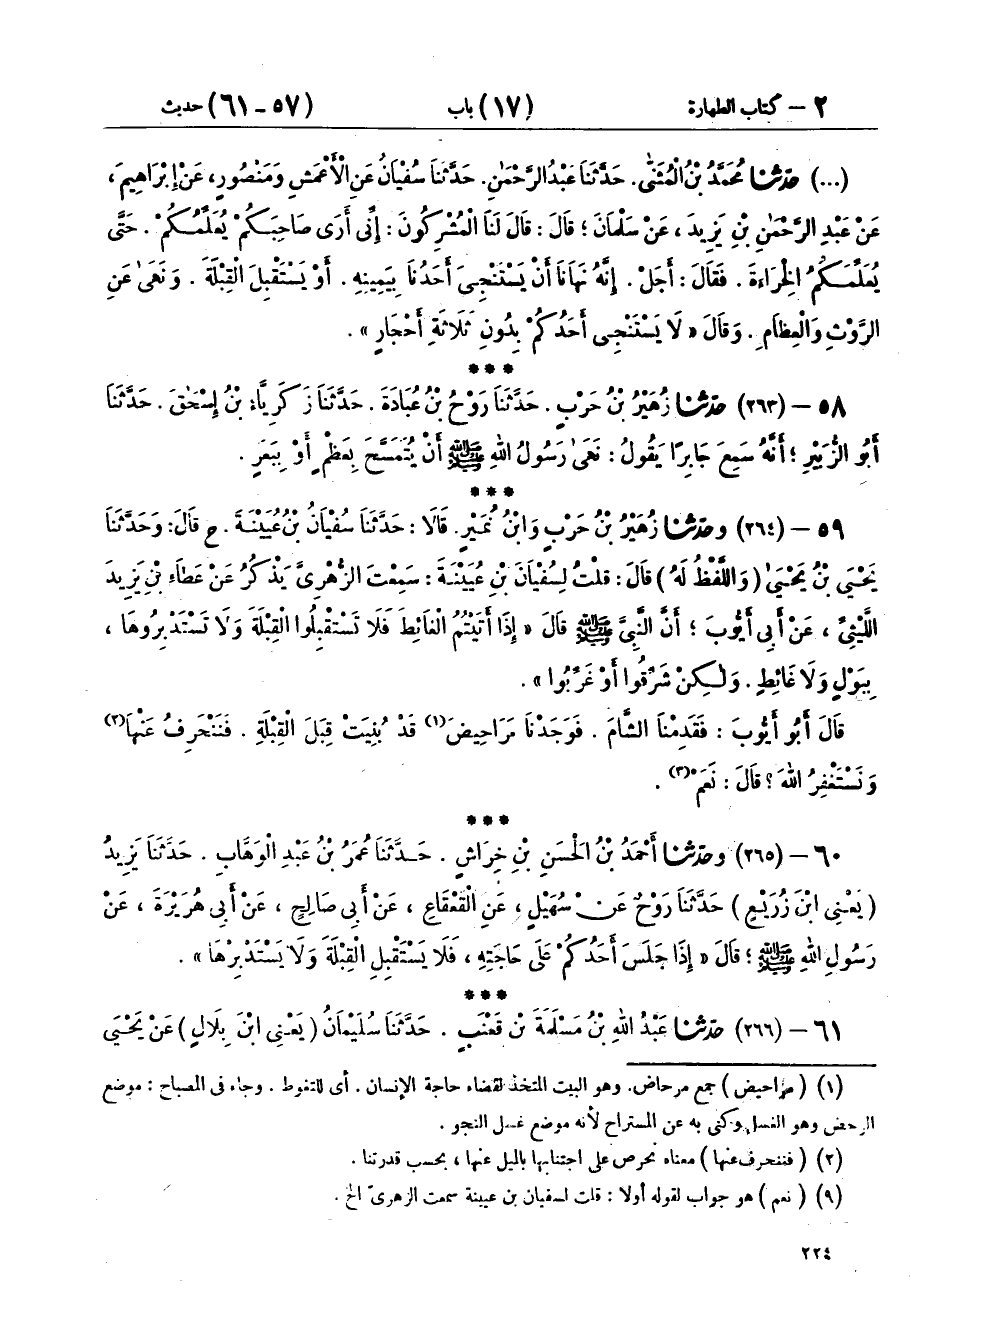 ٢ – كتاب الطهارة (١٧) باب (٥٧ – ٦١) حديث
(...) حَدَّثَنَا مُحَمَّدُ بْنُ الْمُثَنَّى. حَدَّثَنَا عَبْدُ الرَّحْمَنِ. حَدَّثَنَا سُفْيَانُ عَنِ الْأَعْمَشِ وَمَنْصُورٍ، عَنْ إِبْرَاهِيمَ،
عَنْ عَبْدِ الرَّحْمَنِ بْنِ يَزِيدَ، عَنْ سَلْمَانَ؛ قَالَ: قَالَ لَنَا الْمُشْرِكُونَ: إِنِّي أَرَى صَاحِبَكُمْ يُعَلِّمُكُمْ. حَتَّى
يُعَلِّمَكُمُ الْخِرَاءَةَ. فَقَالَ: أَجَلْ. إِنَّهُ نَهَانَا أَنْ يَسْتَنْجِيَ أَحَدُنَا بِيَمِينِهِ. أَوْ يَسْتَقْبِلَ الْقِبْلَةَ. وَنَهَى عَنِ
الرَّوْثِ وَالْعِظَامِ. وَقَالَ «لَا يَسْتَنْجِي أَحَدُكُمْ بِدُونِ ثَلَاثَةِ أَحْجَارٍ».
***
٥٨ – (٢٦٣) حَدَّثَنَا زُهَيْرُ بْنُ حَرْبٍ. حَدَّثَنَا رَوْحُ بْنُ عُبَادَةَ. حَدَّثَنَا زَكَرِيَّاءُ بْنُ إِسْحَقَ. حَدَّثَنَا
أَبُو الزُّبَيْرِ؛ أَنَّهُ سَمِعَ جَابِرًا يَقُولُ: نَهَى رَسُولُ اللهِ ﷺ أَنْ يُتَمَسَّحَ بِعَظْمٍ أَوْ بِبَعَرٍ.
***
٥٩ – (٢٦٤) وحَدَّثَنَا زُهَيْرُ بْنُ حَرْبٍ وَابْنُ نُمَيْرٍ. قَالَا: حَدَّثَنَا سُفْيَانُ بْنُ عُيَيْنَةَ. ح قَالَ: وَحَدَّثَنَا
يَحْيَى بْنُ يَحْيَى (وَاللَّفْظُ لَهُ) قَالَ: قُلْتُ لِسُفْيَانَ بْنِ عُيَيْنَةَ: سَمِعْتَ الزُّهْرِيَّ يَذْكُرُ عَنْ عَطَاءِ بْنِ يَزِيدَ
اللَّيْثِيِّ، عَنْ أَبِي أَيُّوبَ؛ أَنَّ النَّبِيَّ ﷺ قَالَ «إِذَا أَتَيْتُمُ الْغَائِطَ فَلَا تَسْتَقْبِلُوا الْقِبْلَةَ وَلَا تَسْتَدْبِرُوهَا،
بِبَوْلٍ وَلَا غَائِطٍ. وَلَكِنْ شَرِّقُوا أَوْ غَرِّبُوا».
قَالَ أَبُو أَيُّوبَ: فَقَدِمْنَا الشَّامَ. فَوَجَدْنَا مَرَاحِيضَ(١) قَدْ بُنِيَتْ قِبَلَ الْقِبْلَةِ. فَنَنْحَرِفُ عَنْهَا(٢)
وَنَسْتَغْفِرُ اللهَ؟ قَالَ: نَعَمْ(٣).
***
٦٠ – (٢٦٥) وحَدَّثَنَا أَحْمَدُ بْنُ الْحَسَنِ بْنِ خِرَاشٍ. حَدَّثَنَا عُمَرُ بْنُ عَبْدِ الْوَهَّابِ. حَدَّثَنَا يَزِيدُ
(يَعْنِي ابْنَ زُرَيْعٍ) حَدَّثَنَا رَوْحٌ عَنْ سُهَيْلٍ، عَنِ الْقَعْقَاعِ، عَنْ أَبِي صَالِحٍ، عَنْ أَبِي هُرَيْرَةَ، عَنْ
رَسُولِ اللهِ ﷺ؛ قَالَ «إِذَا جَلَسَ أَحَدُكُمْ عَلَى حَاجَتِهِ، فَلَا يَسْتَقْبِلِ الْقِبْلَةَ وَلَا يَسْتَدْبِرْهَا».
***
٦١ – (٢٦٦) حَدَّثَنَا عَبْدُ اللهِ بْنُ مَسْلَمَةَ بْنِ قَعْنَبٍ. حَدَّثَنَا سُلَيْمَانُ (يَعْنِي ابْنَ بِلَالٍ) عَنْ يَحْيَى
(١) (مراحيض) جمع مرحاض. وهو البيت المتخذ لقضاء حاجة الإنسان. أى للتغوط. وجاء فى المصباح: موضع
الرحض وهو الغسل وكنى به عن المستراح لأنه موضع غسل النجو.
(٢) (فننحرف عنها) معناه نحرص على اجتنابها بالميل عنها، بحسب قدرتنا.
(٩) (نعم) هو جواب لقوله أولا: قلت لسفيان بن عيينة سمعت الزهرىّ الخ.
٢٢٤